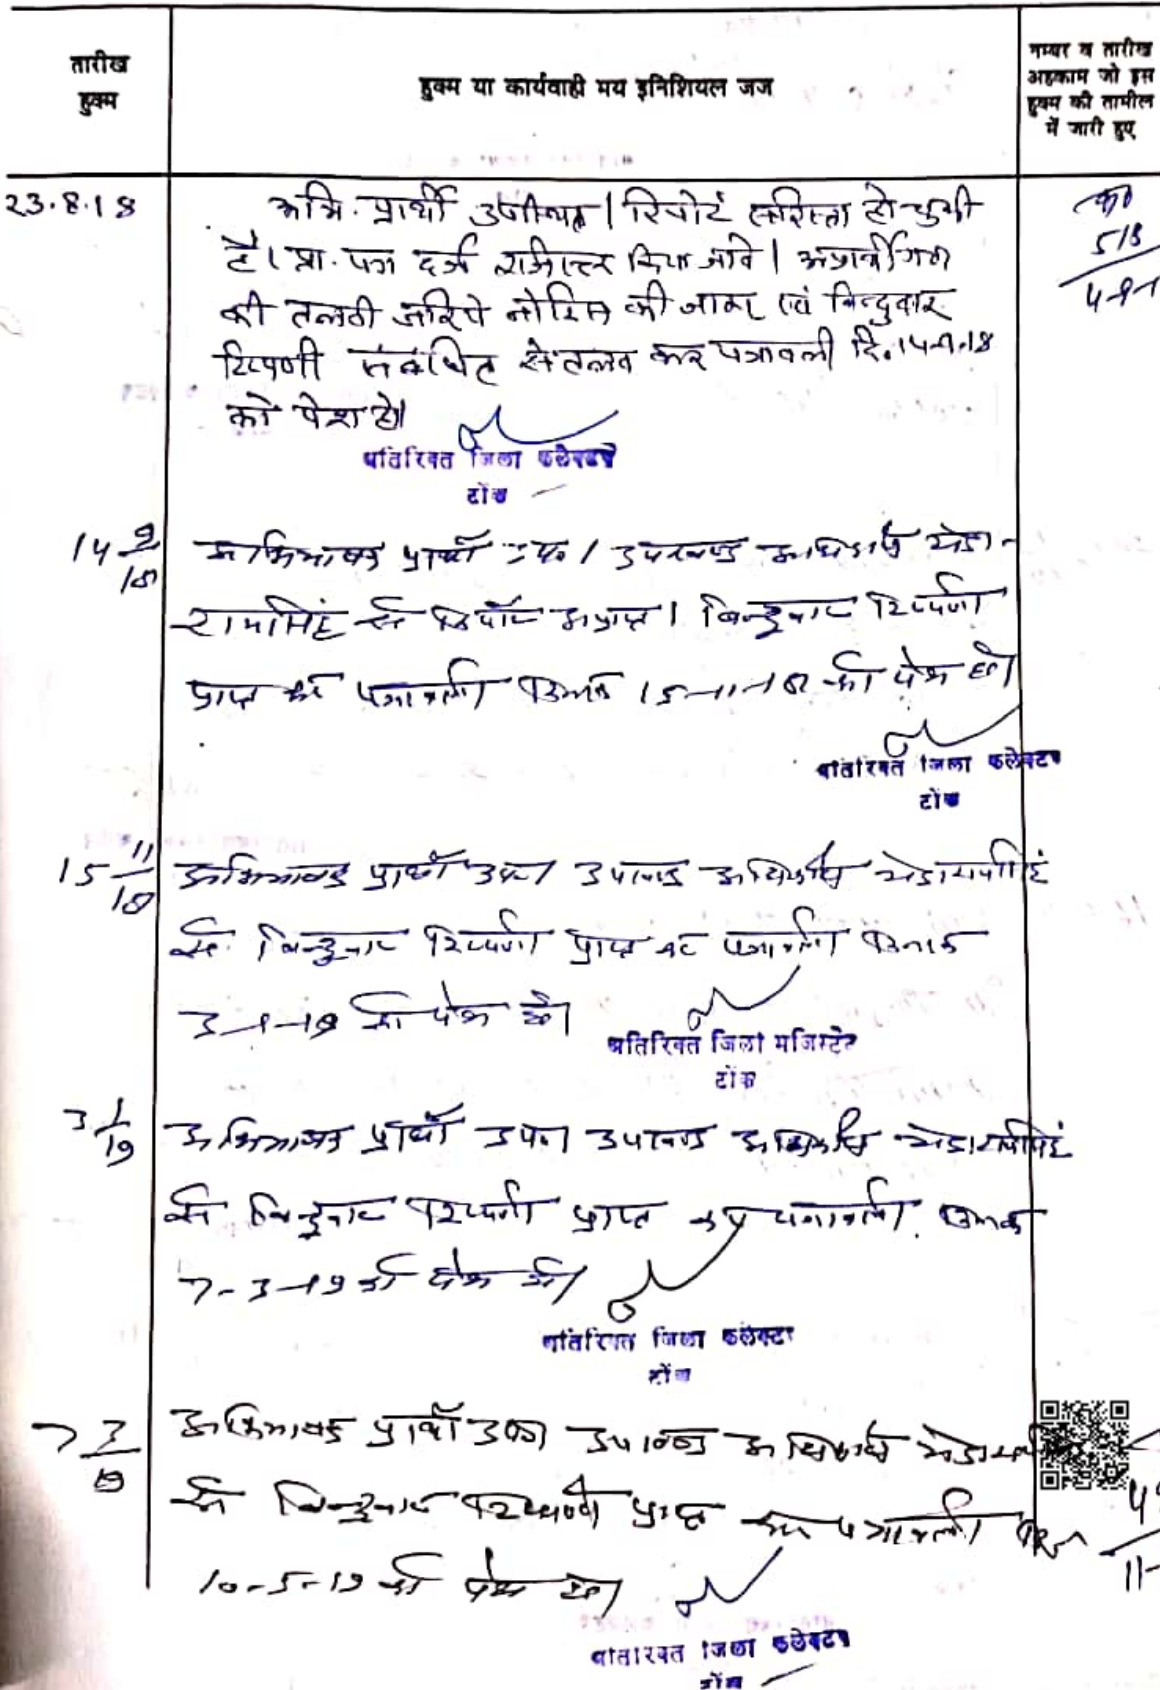 तारीख
हुक्म
हुक्म या कार्यवाही मय इनिशियल जज
नम्बर व तारीख
अहकाम जो इस
हुक्म की तामील
में जारी हुए
23.8.18
अभि. प्रार्थी उपस्थित। रिपोर्ट सरिस्ता हो चुकी
है। प्रा. पत्र दर्ज रजिस्टर किया जावे। अप्रार्थीगण
की तलबी जरिये नोटिस की जाए एवं बिन्दुवार
टिप्पणी संबंधित से तलब कर पत्रावली दि. 14-9-18
को पेश हो।
518
अतिरिक्त जिला कलेक्टर
टोंक
14 9/18
अभिभाषक प्रार्थी उप। उपखण्ड अधिकारी
से रिपोर्ट अप्राप्त। बिन्दुवार टिप्पणी
प्राप्त कर पत्रावली दिनांक 15-11-18 को पेश हो।
अतिरिक्त जिला कलेक्टर
टोंक
15 11/18
अभिभाषक प्रार्थी उप। उपखण्ड अधिकारी
से बिन्दुवार टिप्पणी प्राप्त कर पत्रावली दिनांक
3-1-19 को पेश हो।
अतिरिक्त जिला मजिस्ट्रेट
टोंक
3 1/19
अभिभाषक प्रार्थी उप। उपखण्ड अधिकारी
से बिन्दुवार टिप्पणी प्राप्त कर पत्रावली दिनांक
7-3-19 को पेश हो।
अतिरिक्त जिला कलेक्टर
टोंक
7 3/19
अभिभाषक प्रार्थी उप। उपखण्ड अधिकारी
से बिन्दुवार टिप्पणी प्राप्त कर पत्रावली
10-5-19 को पेश हो।
अतिरिक्त जिला कलेक्टर
टोंक